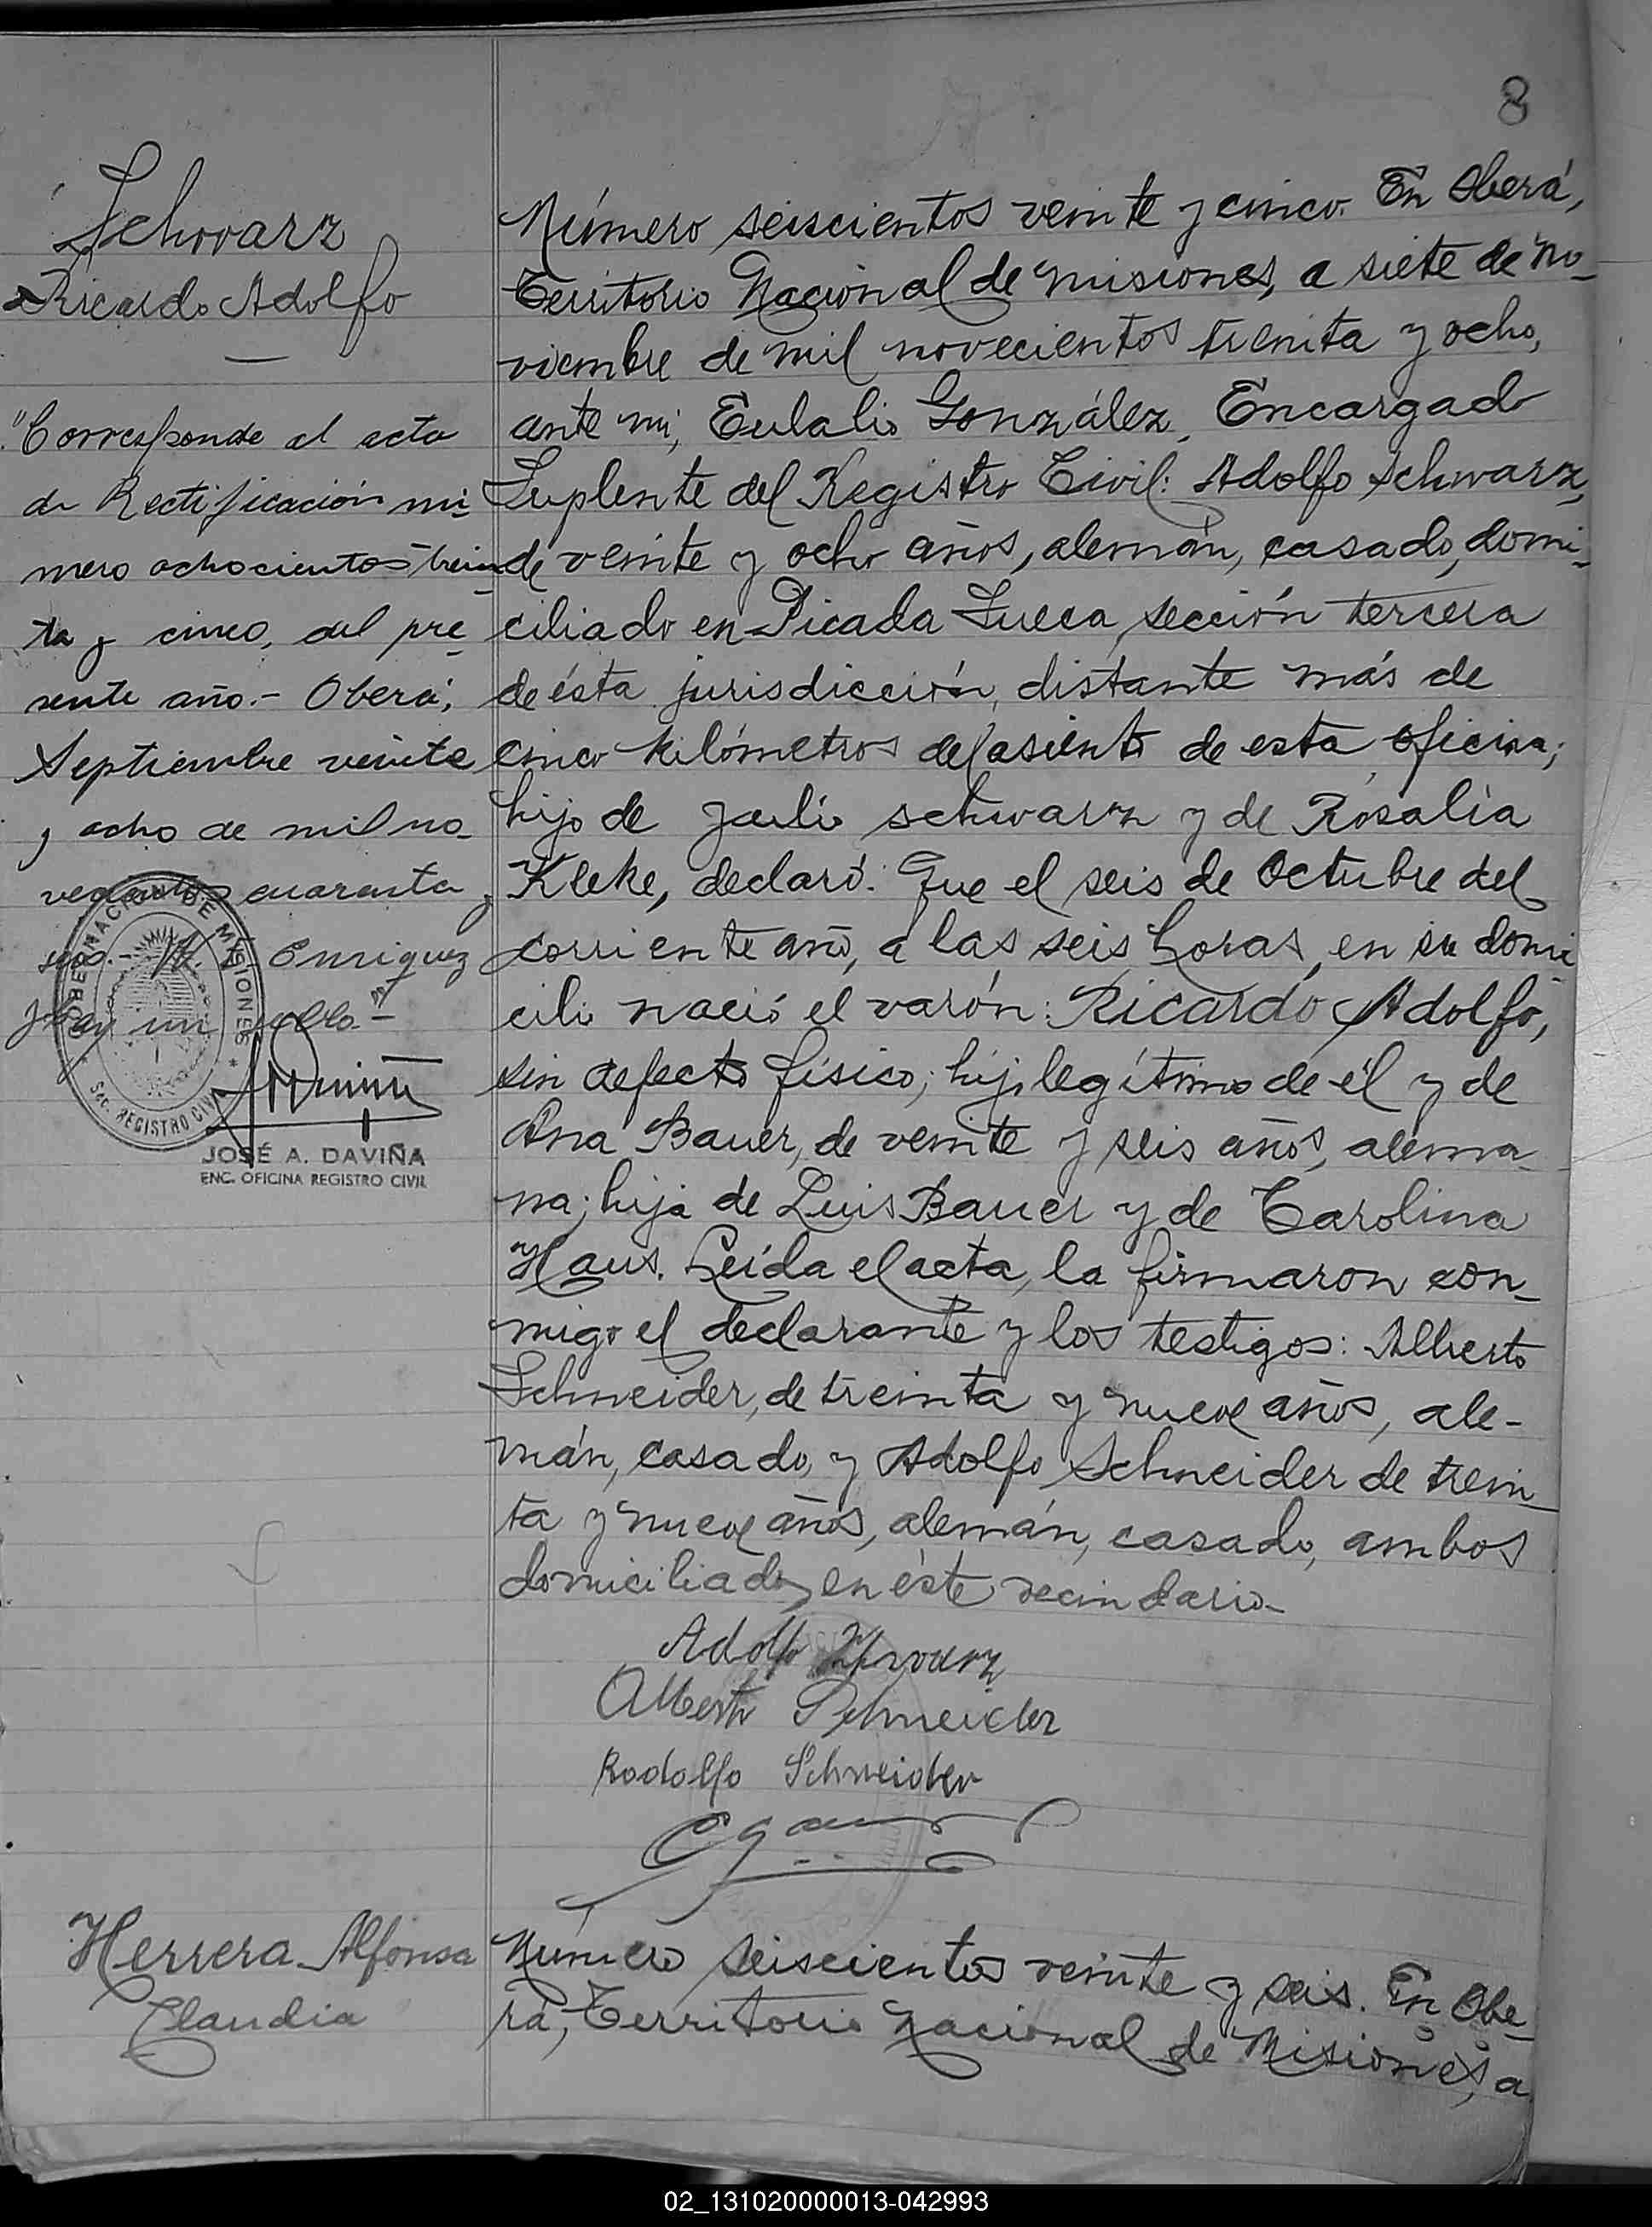 8
Schwarz
Ricardo Adolfo
"Corresponde al acta
de Rectificación nú-
mero ochocientos trein-
ta y cinco, del pre-
sente año.- Oberá,
Septiembre veinte
y ocho de mil no-
vecientos cuarenta y
seis.- Enriquez
Hay un sello."-
GOBERNACION DE MISIONES
Sec. REGISTRO CIVIL
JOSÉ A. DAVIÑA
ENC. OFICINA REGISTRO CIVIL
Número seiscientos veinte y cinco. En Oberá,
Territorio Nacional de Misiones, a siete de No-
viembre de mil novecientos treinta y ocho,
ante mí, Eulalio González, Encargado
Suplente del Registro Civil: Adolfo Schwarz,
de veinte y ocho años, alemán, casado, domi-
ciliado en Picada Sueca, sección tercera
de ésta jurisdicción, distante más de
cinco kilómetros del asiento de esta oficina;
hijo de Julio Schwarz y de Rosalia
Kleke, declaró: Que el seis de Octubre del
corriente año, a las seis horas, en su domi-
cilio nació el varón: Ricardo Adolfo,
sin defecto físico; hijo legítimo de él y de
Ana Bauer, de veinte y seis años, alema-
na; hija de Luis Bauer y de Carolina
Haus. Leída el acta, la firmaron con-
migo el declarante y los testigos: Alberto
Schneider, de treinta y nueve años, ale-
mán, casado, y Adolfo Schneider de trein-
ta y nueve años, alemán, casado, ambos
domiciliados en éste vecindario-
Adolfo Schwarz
Alberto Schneider
Rodolfo Schneider
Herrera Alfonsa
Claudia
Número seiscientos veinte y seis. En Obe-
rá, Territorio Nacional de Misiones, a
02_131020000013-042993